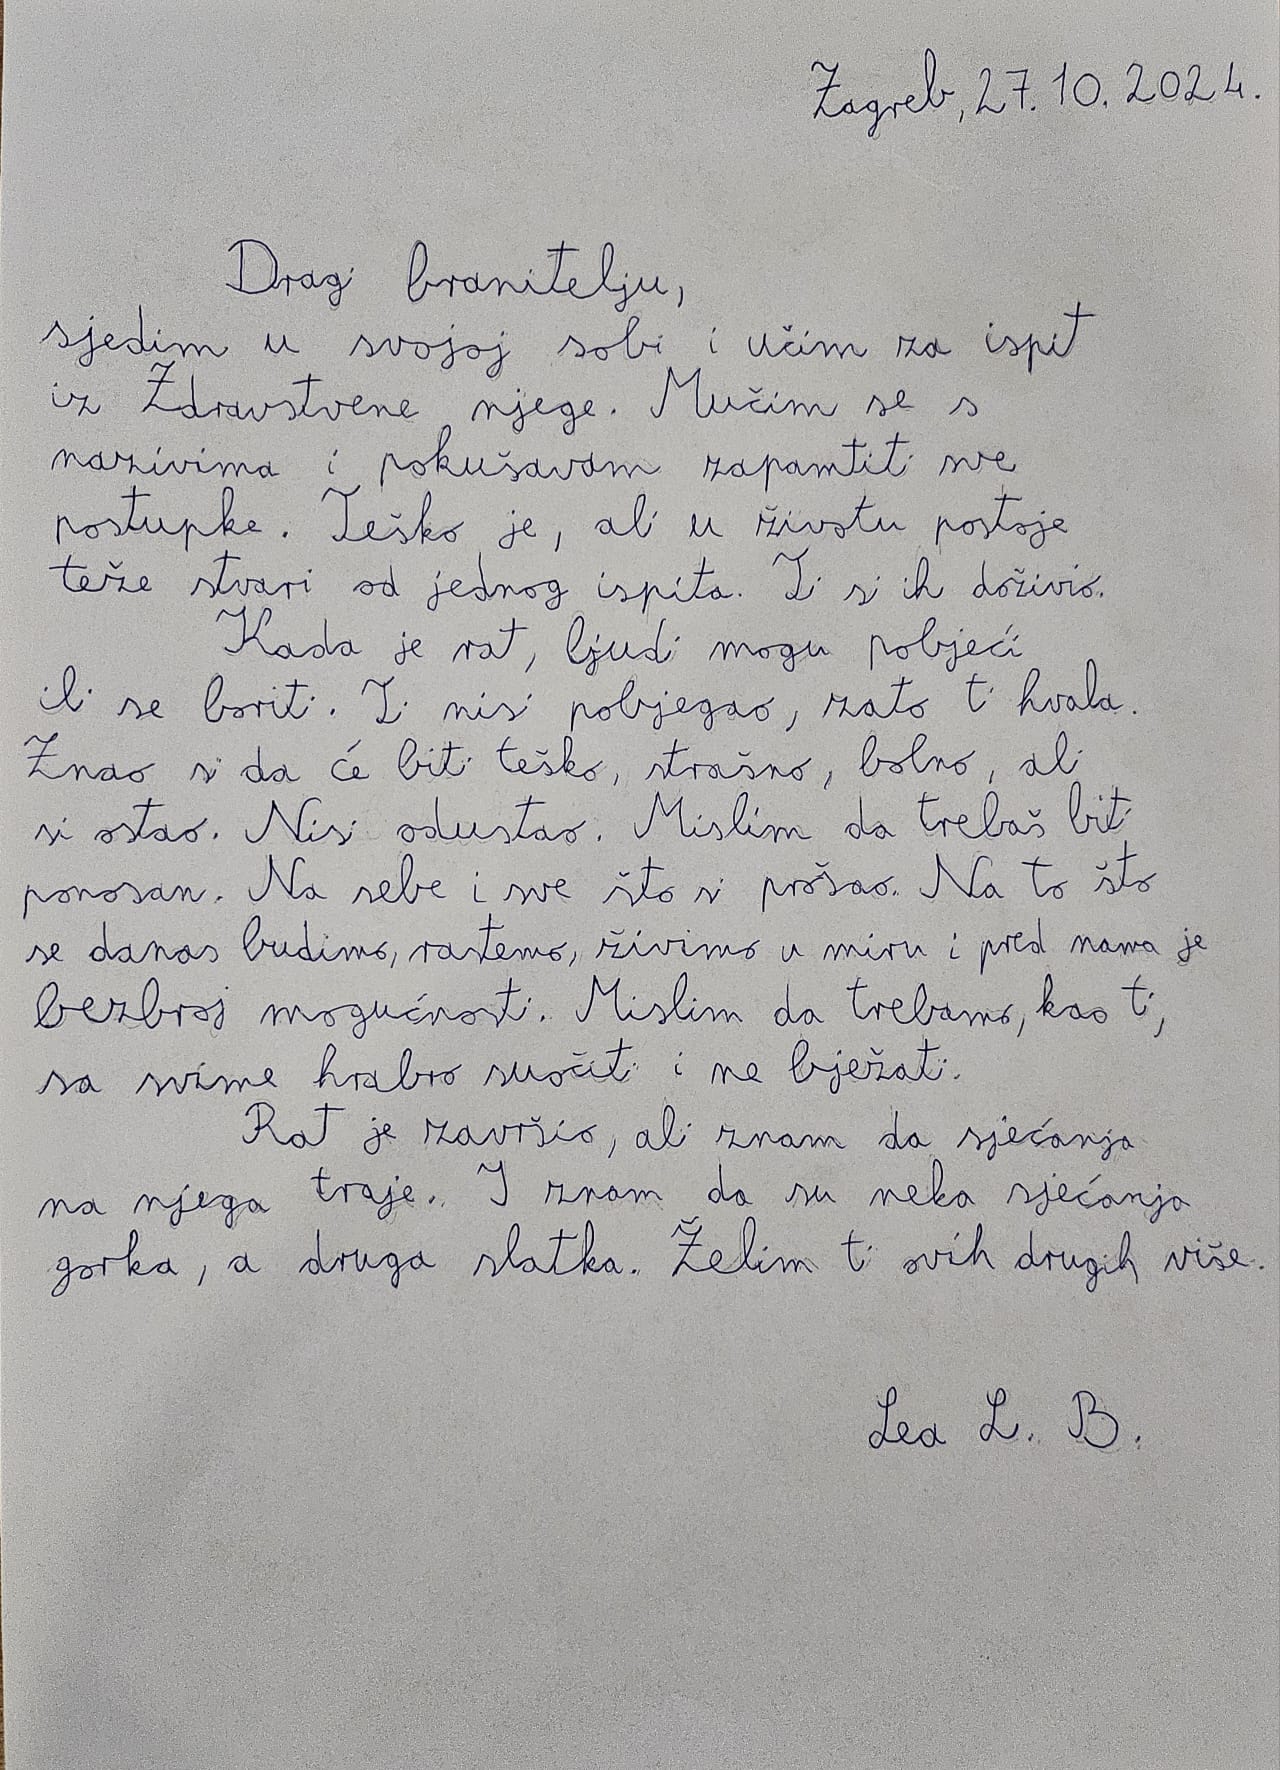 Zagreb, 27. 10. 2024.
Dragi branitelju,
sjedim u svojoj sobi i učim za ispit
iz Zdravstvene njege. Mučim se s
nazivima i pokušavam zapamtiti sve
postupke. Teško je, ali u životu postoje
teže stvari od jednog ispita. Ti si ih doživio.
Kada je rat, ljudi mogu pobjeći
ili se boriti. Ti nisi pobjegao, zato ti hvala.
Znao si da će biti teško, strašno, bolno, ali
si ostao. Nisi odustao. Mislim da trebaš biti
ponosan. Na sebe i sve što si prošao. Na to što
se danas budimo, rastemo, živimo u miru i pred nama je
bezbroj mogućnosti. Mislim da trebamo, kao ti,
sa svime hrabro suočiti i ne bježati.
Rat je završio, ali znam da sjećanja
na njega traje. I znam da su neka sjećanja
gorka, a druga slatka. Želim ti ovih drugih više.
Lea L. B.